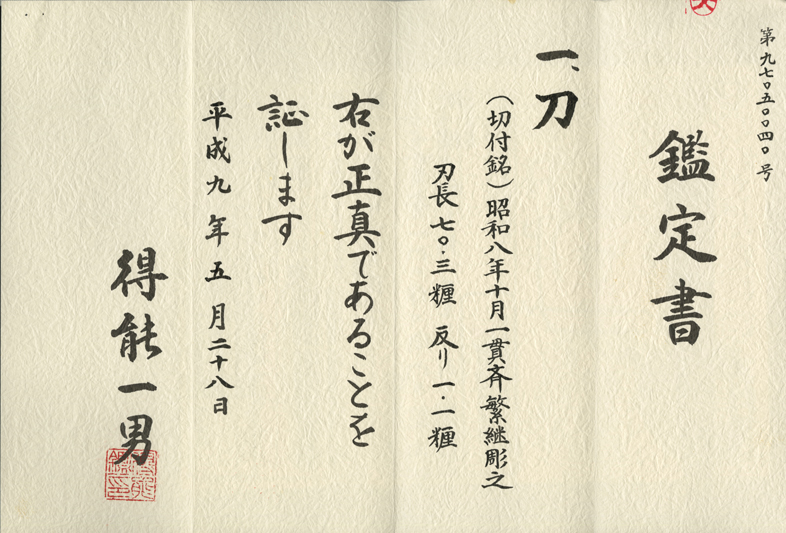 第九七〇五〇〇四〇号
鑑定書
一、刀
(切付銘)昭和八年十月一貫斉繁継彫之
刃長七〇・三糎 反り一・一糎
右が正真であることを
証します
平成九年五月二十八日
得能一男